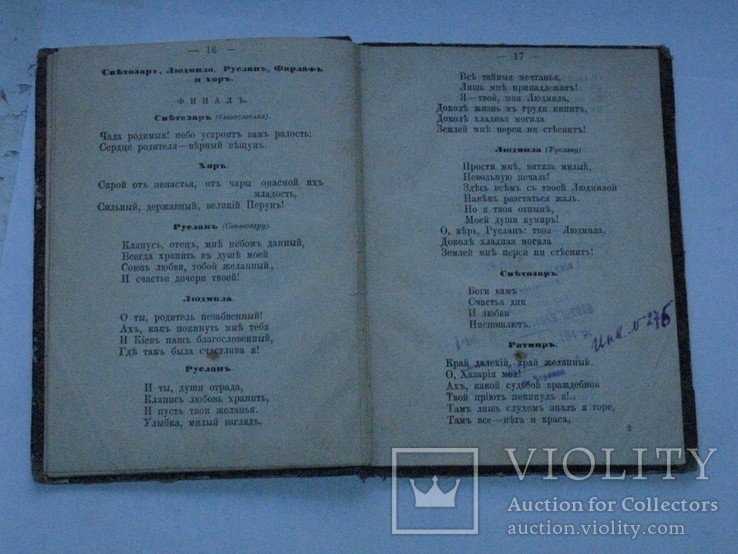 — 16 —
Свѣтозаръ, Людмила, Русланъ, Фарлафъ
и хоръ.
ФИНАЛЪ.
Свѣтозаръ (благословляя).
Чада родимыя! небо устроитъ вамъ радость:
Сердце родителя—вѣрный вѣщунъ.
Хоръ.
Скрой отъ ненастья, отъ чары опасной ихъ
младость,
Сильный, державный, великій Перунъ!
Русланъ (Свѣтозару).
Клянусь, отецъ, мнѣ небомъ данный,
Всегда хранить въ душѣ моей
Союзъ любви, тобой желанный,
И счастье дочери твоей!
Людмила.
О ты, родитель незабвенный!
Ахъ, какъ покинуть мнѣ тебя
И Кіевъ нашъ благословенный,
Гдѣ такъ была счастлива я!
Русланъ.
И ты, души отрада,
Клянись любовь хранить,
И пусть твои желанья,
Улыбка, милый взглядъ,
— 17
Всѣ тайныя мечтанья,
Лишь мнѣ принадлежатъ!
Я—твой, моя Людмила,
Доколѣ жизнь въ груди кипитъ,
Доколѣ хладная могила
Землей мнѣ перси не стѣснитъ!
Людмила (Руслану)
Прости мнѣ, витязь милый,
Невольную печаль!
Здѣсь всѣмъ съ твоей Людмилой
Навѣкъ разстаться жаль.
Но я твоя отнынѣ,
Моей души кумиръ!
О, вѣрь, Русланъ: твоя—Людмила,
Доколѣ хладная могила
Землей мнѣ перси не стѣснитъ!
Свѣтозаръ.
Боги вамъ
Счастья дни
И любви
Ниспошлютъ.
Инв. № 276
Ратмиръ.
Край далекій, край желанный,
О, Хазарія моя!
Ахъ, какой судьбой враждебной
Твой пріютъ покинулъ я!..
Тамъ лишь слухомъ зналъ я горе,
Тамъ все—нѣга и краса,
2
VIOLITY
Auction for Collectors
auction.violity.com